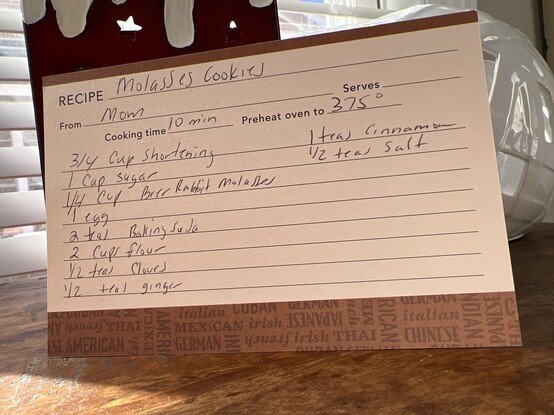 RECIPE Molasses Cookies
From Mom Serves
Cooking time 10 min Preheat oven to 375°
3/4 Cup Shortening
1 Cup Sugar
1/4 Cup Brer Rabbit Molasses
1 egg
2 teas Baking Soda
2 Cups flour
1/2 teas Cloves
1/2 teas ginger
1 teas Cinnamon
1/2 teas Salt
italian CUBAN GERMAN
MEXICAN irish JAPANESE
AMERICAN french THAI
GERMAN irish french THAI CHINESE